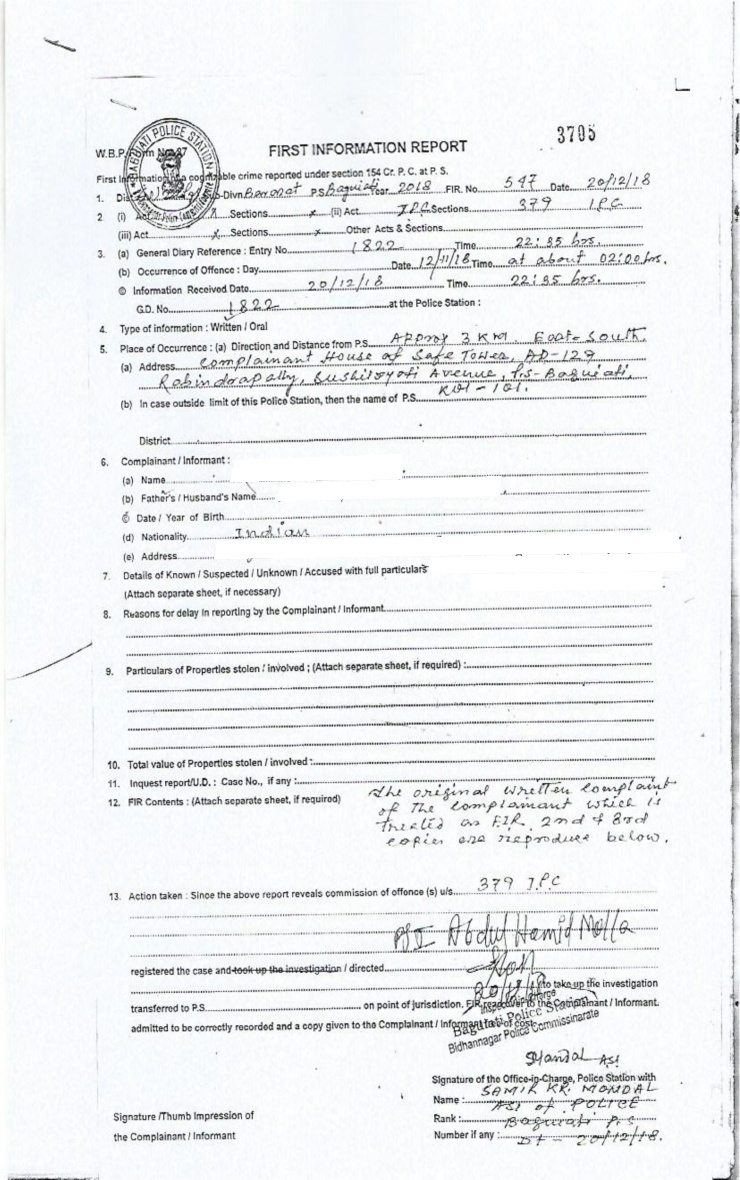 3705
BAGUIATI POLICE STATION
W.B.P. Form No. 27
FIRST INFORMATION REPORT
First Information of a cognizable crime reported under section 154 Cr. P. C. at P. S.
1. Sub-Divn Barasat P.S. Baguiati Year 2018 FIR. No. 547 Date 20/12/18
2 (i) Act x Sections x (ii) Act I.P.C Sections 379 I.P.C
(iii) Act x Sections x Other Acts & Sections
3. (a) General Diary Reference : Entry No. 1822 Time 22:35 hrs.
(b) Occurrence of Offence : Day Date 12/11/18 Time at about 02:00 hrs.
© Information Received Date 20/12/18 Time 22:35 hrs.
G.D. No. 1822 at the Police Station :
4. Type of information : Written / Oral
5. Place of Occurrence : (a) Direction and Distance from P.S. Approx 3 KM. East-South.
(a) Address Complainant House of Safe Tower, AD-129
Rabindrapally, Sushilsyoti Avenue, P.S- Baguiati,
Kol-101.
(b) In case outside limit of this Police Station, then the name of P.S.
District
6. Complainant / Informant :
(a) Name
(b) Father's / Husband's Name
© Date / Year of Birth
(d) Nationality Indian
(e) Address
7. Details of Known / Suspected / Unknown / Accused with full particulars
(Attach separate sheet, if necessary)
8. Reasons for delay in reporting by the Complainant / Informant
9. Particulars of Properties stolen / involved ; (Attach separate sheet, if required) :
10. Total value of Properties stolen / involved :
11. Inquest report/U.D. : Case No., if any :
12. FIR Contents : (Attach separate sheet, if required)
The original written complaint
of the complainant which is
treated as FIR. 2nd & 3rd
copies are reproduce below.
13. Action taken : Since the above report reveals commission of offence (s) u/s. 379 I.P.C
Abdul Hamid Molla
registered the case and took up the investigation / directed
to take up the investigation
transferred to P.S. on point of jurisdiction. FIR read over to the Complainant / Informant.
admitted to be correctly recorded and a copy given to the Complainant / Informant free of cost.
Inspector-in-Charge
Baguiati Police Station
Bidhannagar Police Commissinarate
SMondal ASI
Signature of the Office-in-Charge, Police Station with
Name : SAMIR KR. MONDAL
Rank : ASI of POLICE
Baguiati P.S
Number if any : DT - 20/12/18.
Signature /Thumb Impression of
the Complainant / Informant